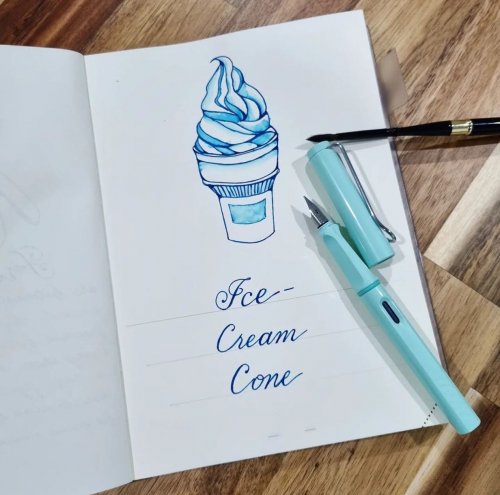 Ice-
Cream
Cone